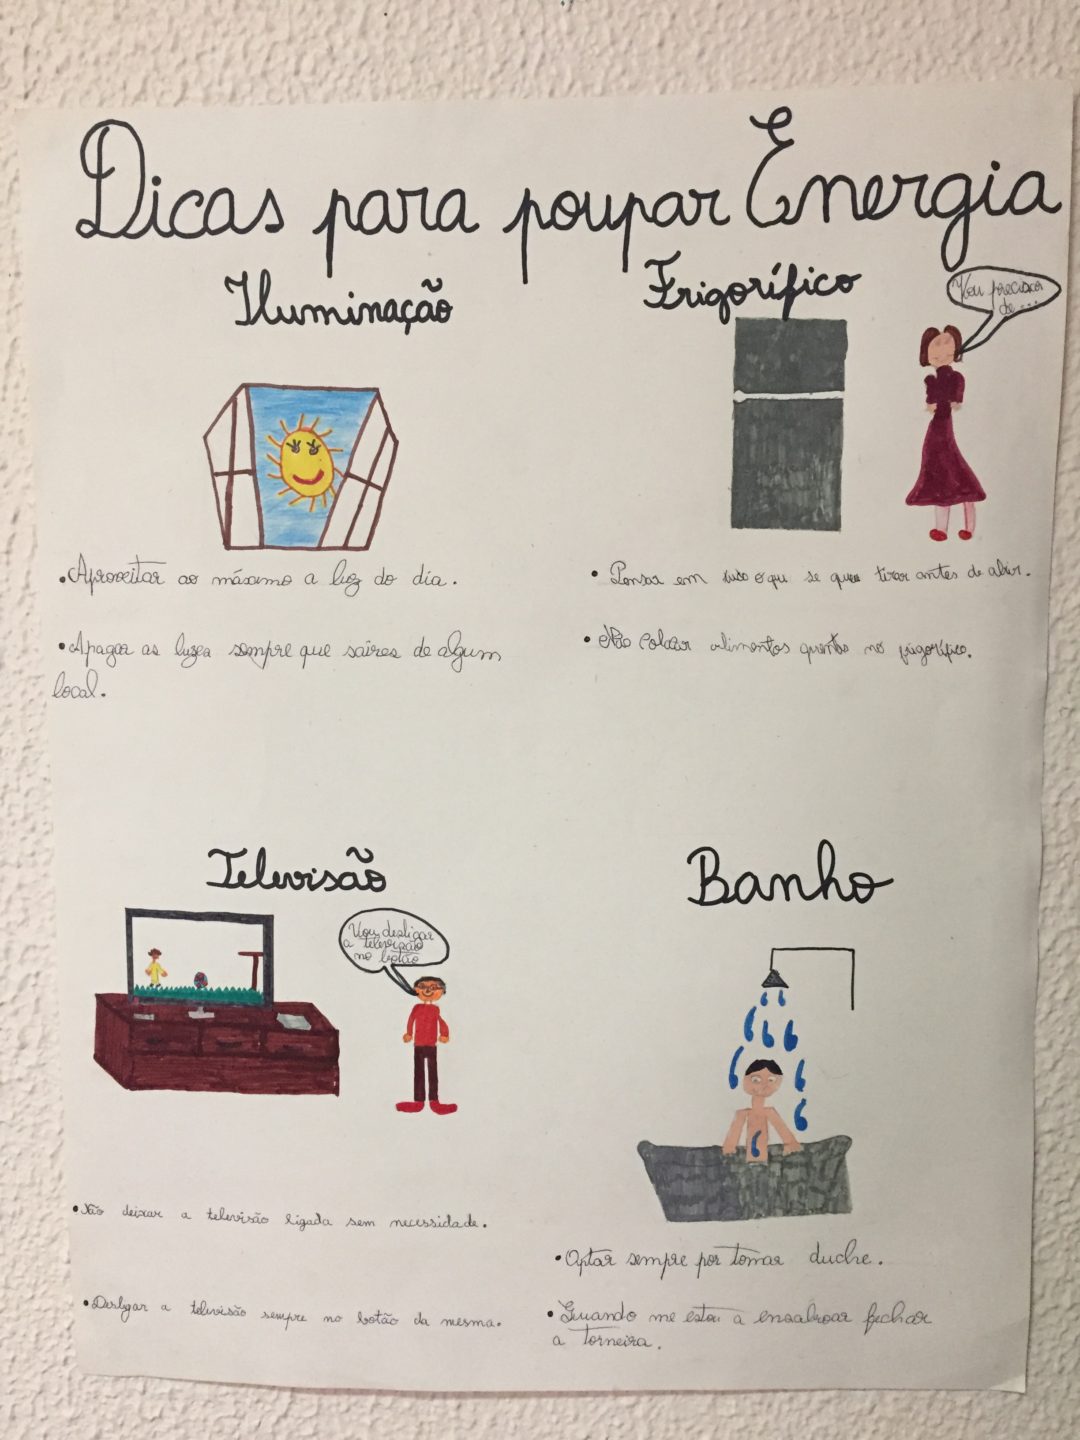 Dicas para poupar Energia
Iluminação
• Aproveitar ao máximo a luz do dia.
• Apagar as luzes sempre que saíres de algum
local.
Frigorífico
Vou precisar
de ...
• Pensar em tudo o que se quer tirar antes de abrir.
• Não colocar alimentos quentes no frigorífico.
Televisão
Vou desligar
a televisão
no botão
• Não deixar a televisão ligada sem necessidade.
• Desligar a televisão sempre no botão da mesma.
Banho
• Optar sempre por tomar duche.
• Quando me estou a ensaboar fechar
a torneira.